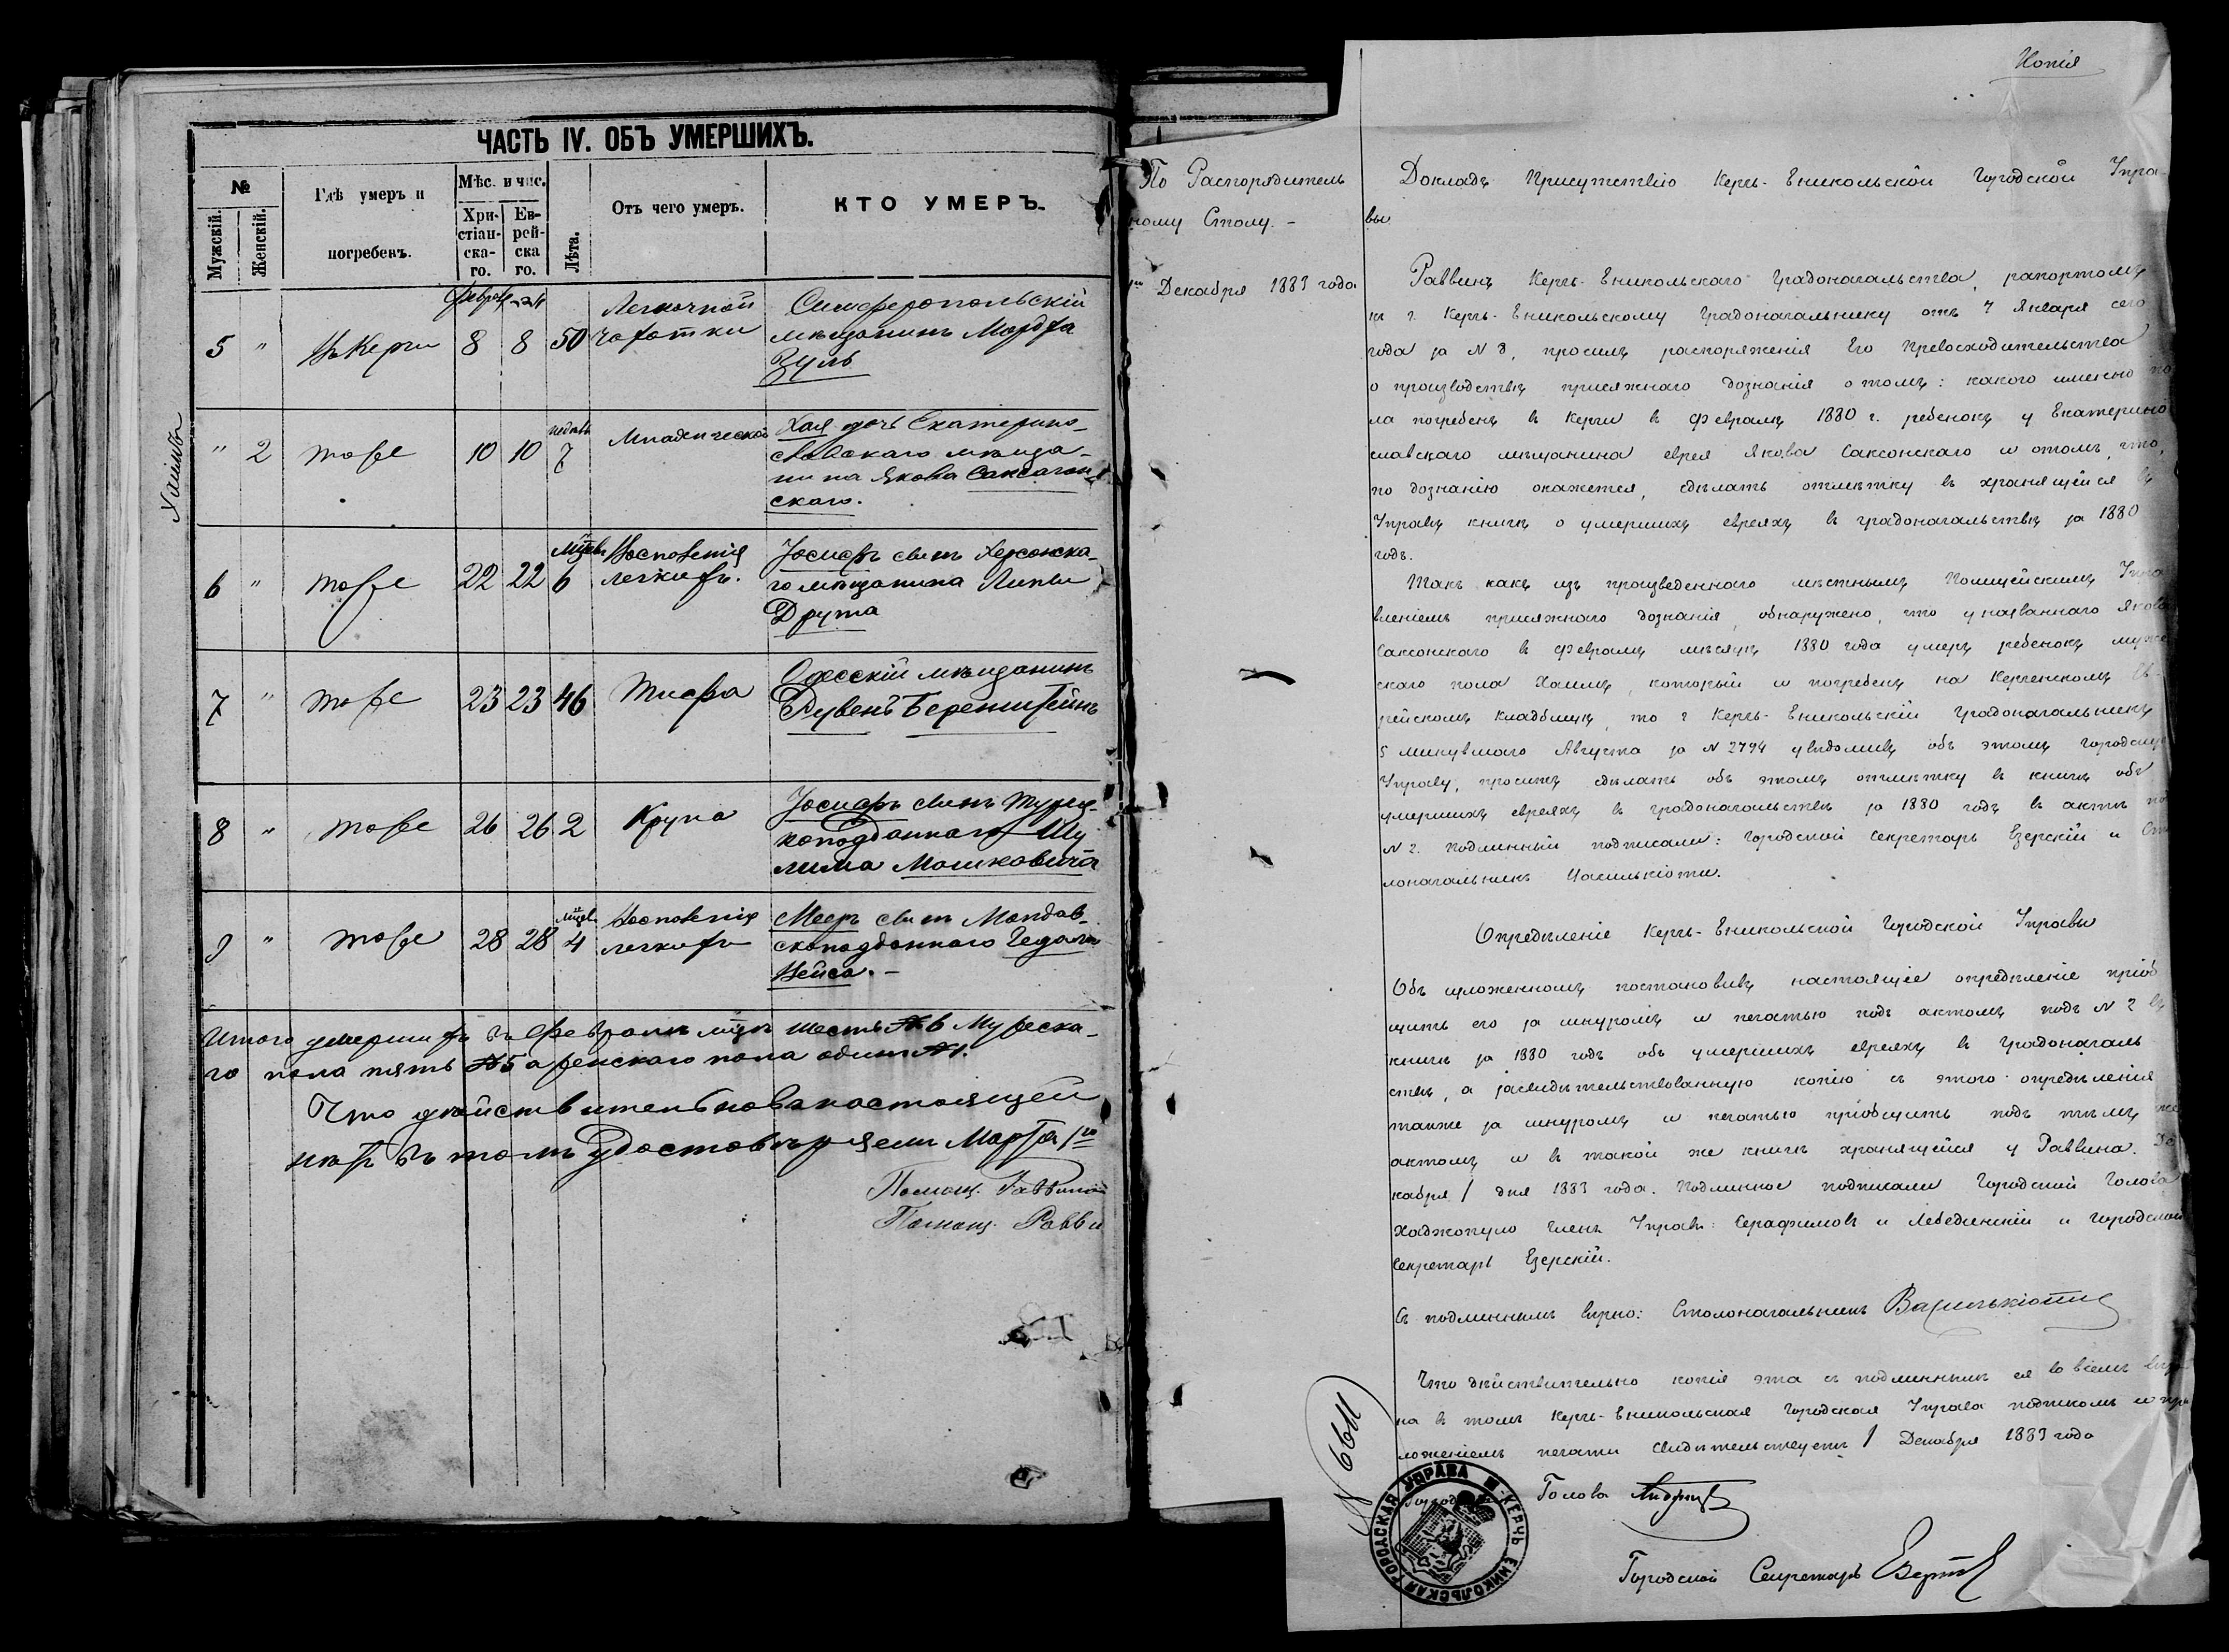 ЧАСТЬ IV. ОБЪ УМЕРШИХЪ.
№
Мужскій.
Женскій.
Гдѣ умеръ и погребенъ.
Мѣс. и чис.
Христіанскаго.
Еврейскаго.
Лѣта.
Отъ чего умеръ.
КТО УМЕРЪ.
5 " Въ Керчи 8 8 50 Легочной чахотки Симферопольскій
мѣщанинъ Мордха
Зуль
Хаимъ
" 2 тоже 10 10 недѣль 7 Младенческой Хая дочь Екатерино-
славскаго мѣща-
нина Якова Саксаган-
скаго.
6 " тоже 22 22 6 Воспаленія легкихъ. Іосифъ сынъ Херсонска-
го мѣщанина Липы
Друта
7 " тоже 23 23 46 Тифа Одесскій мѣщанинъ
Рувенъ Беренштейнъ
8 " тоже 26 26 2 Крупа Іосифъ сынъ Турец-
коподданнаго Шу
лима Мошковича
9 " тоже 28 28 4 Воспаленія легкихъ Мееръ сынъ Молдав-
скоподданнаго
Вейса. -
Итого умершихъ въ Февралѣ м-цѣ шесть № 6 Мужеска-
го пола пять № 5 а женскаго пола одинъ № 1.
Что дѣйствительность настоящей
въ томъ удостовѣряемъ Марта 1го
Помощ. Раввина
Помощ. Равви
Копія
По Распорядитель
ному Столу. -
1го Декабря 1883 года
Докладъ Присутствію Керчь-Еникольской Городской Упра-
вы
Раввинъ Керчь-Еникольскаго Градоначальства, рапортомъ
къ г. Керчь-Еникольскому Градоначальнику отъ 7 Января сего
года за N 8, просилъ распоряженія Его Превосходительства
о производствѣ присяжнаго дознанія о томъ: какого именно по
ла погребенъ въ Керчи въ Февралѣ 1880 г. ребенокъ у Екатерино
славскаго мѣщанина еврея Якова Саксонскаго и о томъ, что,
по дознанію окажется, сдѣлать отмѣтку въ хранящейся въ
Управѣ книгѣ о умершихъ евреяхъ въ градоначальствѣ за 1880
годъ.
Такъ какъ изъ произведеннаго мѣстнымъ Полицейскимъ Упра
вленіемъ присяжнаго дознанія, обнаружено, что у названнаго Якова
Саксонскаго въ Февралѣ мѣсяцѣ 1880 года умеръ ребенокъ муже
скаго пола Хаимъ, который и погребенъ на Керченскомъ Ев-
рейскомъ кладбищѣ, то г Керчь-Еникольскій Градоначальникъ
5 минувшаго Августа за N 2794 увѣдомивъ объ этомъ Городскую
Управу, проситъ сдѣлать объ этомъ отмѣтку въ книгѣ объ
умершихъ евреяхъ въ градоначальствѣ за 1880 годъ въ актѣ
N 2. Подлинный подписали: Городской Секретарь Езерскій и Сто
лоначальникъ Василькіоти.
Опредѣленіе Керчь-Еникольской Городской Управы
Объ изложенномъ постановивъ настоящіе опредѣленіе пріоб
щить его за шнуромъ и печатью подъ актомъ подъ N 2 въ
книгѣ за 1880 годъ объ умершихъ евреяхъ въ Градоначаль
ствѣ, а засвидѣтельствованную копію съ этого опредѣленія
также за шнуромъ и печатью пріобщить подъ тѣмъ же
актомъ и въ такой же книгѣ хранящейся у Раввина. Де
кабря 1 дня 1883 года. Подлинное подписали Городской Голова
Хаджопуло Члены Управы: Серафимовъ и Лебединскій и Городской
Секретарь Езерскій.
Съ подлиннымъ вѣрно: Столоначальникъ Василькіоти
Что дѣйствительно копія эта съ подлинникомъ ея во всемъ вѣр-
на въ томъ Керчь-Еникольская Городская Управа подписомъ и при
ложеніемъ печати свидѣтельствуетъ 1 Декабря 1883 года
Голова
Городской Секретарь
N 6611
КЕРЧЬ ЕНИКОЛЬСКАЯ ГОРОДСКАЯ УПРАВА